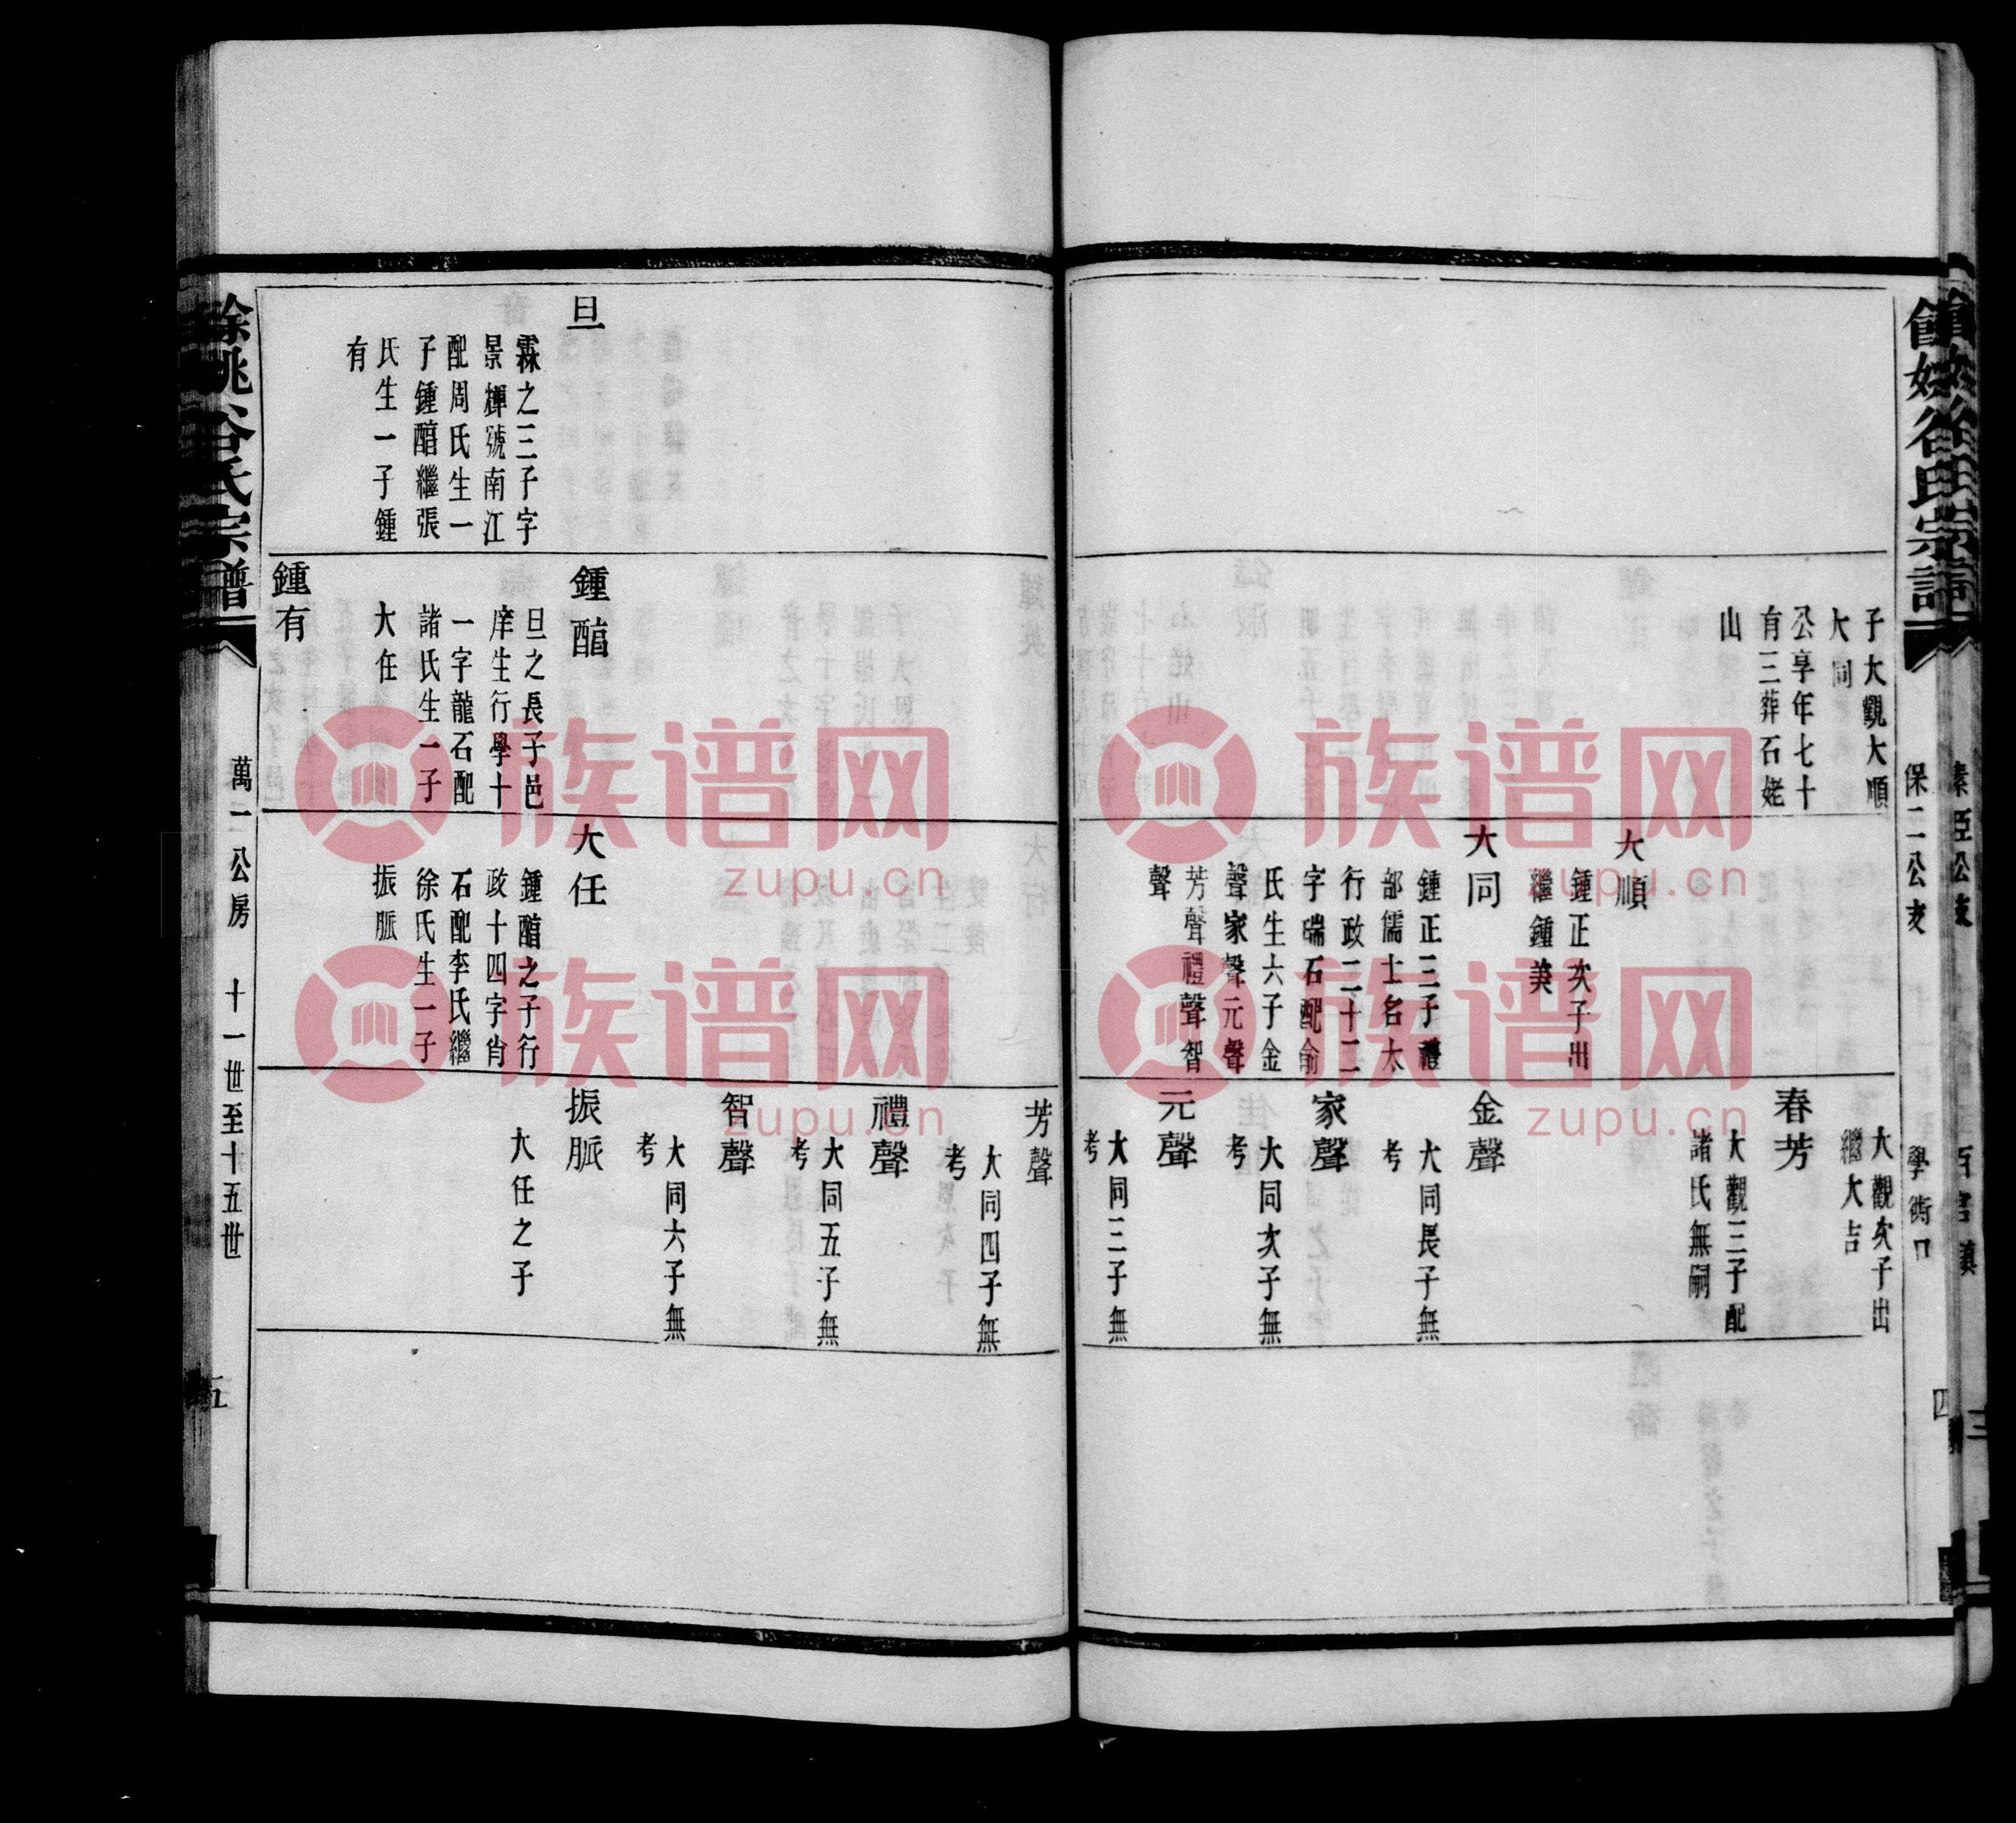 保二公支
學衖口
四
子大觀大順
大同
公享年七十
有三葬石姥
山
大順
鍾正次子出
繼鍾英
大同
鍾正三子禮
部儒士名太
行政二十二
字瑞石配俞
氏生六子金
聲家聲元聲
芳聲禮聲智
聲
大觀次子出
繼大吉
春芳
大觀三子配
諸氏無嗣
金聲
大同長子無
考
家聲
大同次子無
考
元聲
大同三子無
考
旦
霖之三子字
景樿號南江
配周氏生一
子鍾醕繼張
氏生一子鍾
有
鍾醕
旦之長子邑
庠生行學十
一字龍石配
諸氏生一子
大任
鍾有
大任
鍾醕之子行
政十四字肖
石配李氏繼
徐氏生一子
振脈
芳聲
大同四子無
考
禮聲
大同五子無
考
智聲
大同六子無
考
振脈
大任之子
餘姚谷氏宗譜
萬二公房
十一世至十五世
五
族谱网
zupu.cn
族谱网
zupu.cn
族谱网
zupu.cn
族谱网
zupu.cn